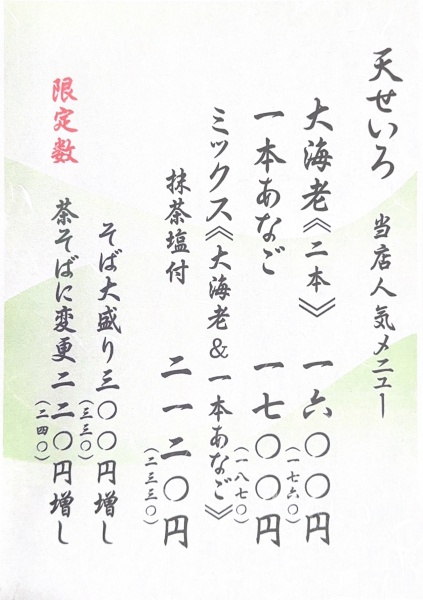 天せいろ 当店人気メニュー
大海老《二本》 一六〇〇円
(一七六〇)
一本あなご 一七〇〇円
(一八七〇)
ミックス《大海老&一本あなご》
抹茶塩付 二一二〇円
(二三三〇)
そば大盛り三〇〇円増し
(三三〇)
限定数 茶そばに変更 二二〇円増し
(二四〇)